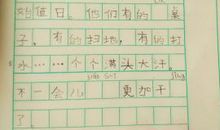 始值日。他们有的桌
子。有的扫地，有的打
水……个个满头大汗。
不一会儿 更加干
了